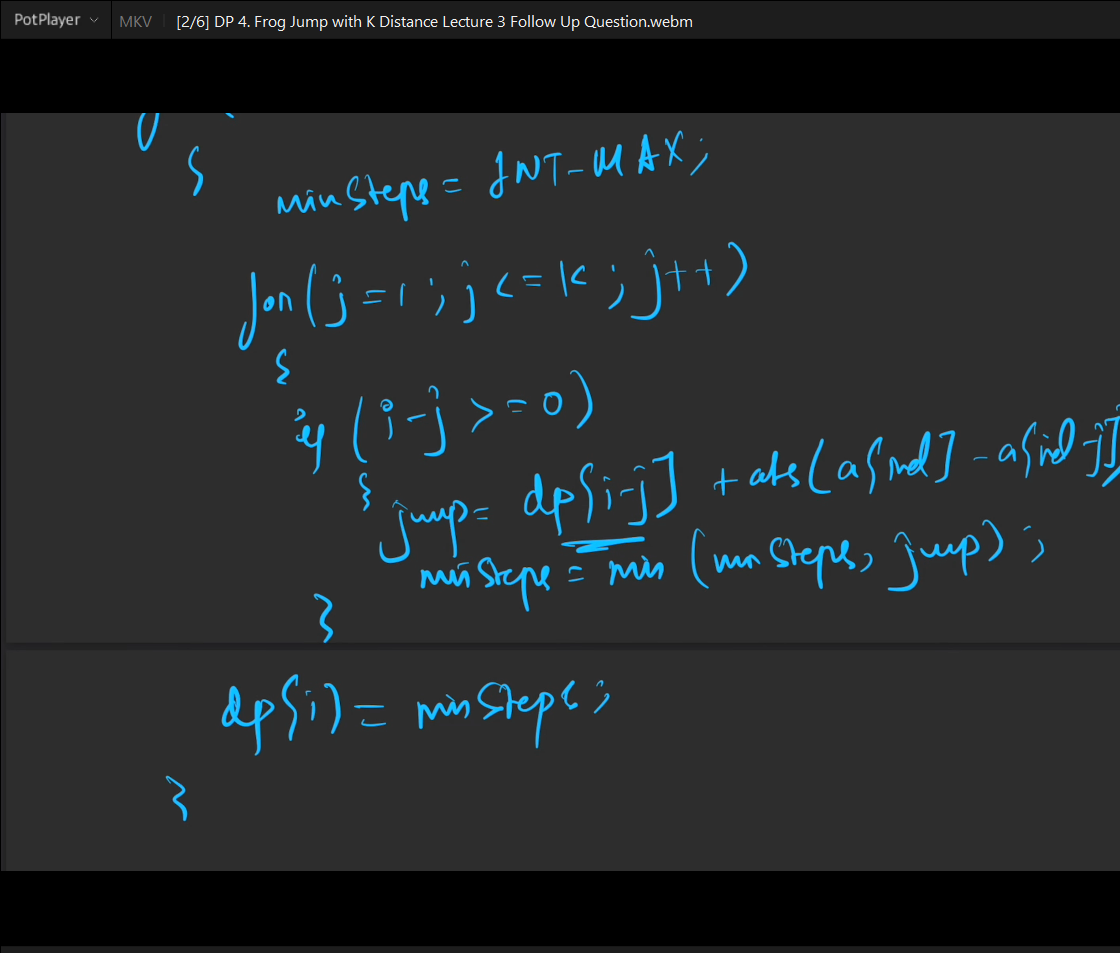 PotPlayer MKV [2/6] DP 4. Frog Jump with K Distance Lecture 3 Follow Up Question.webm
{
minSteps = INT_MAX;
for (j = 1; j <= K; j++)
{
if (i-j >= 0)
{
jump = dp[i-j] + abs(a[ind] - a[ind-j]
minSteps = min (minSteps, jump);
}
dp[i] = minSteps;
}